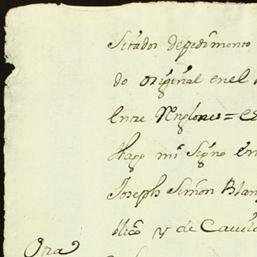 Sitador de pedimento
do original en el
Entre Renglones = es
Hago mi Signo en
Joseph Simon Blan
blico y de Cavil
Ora